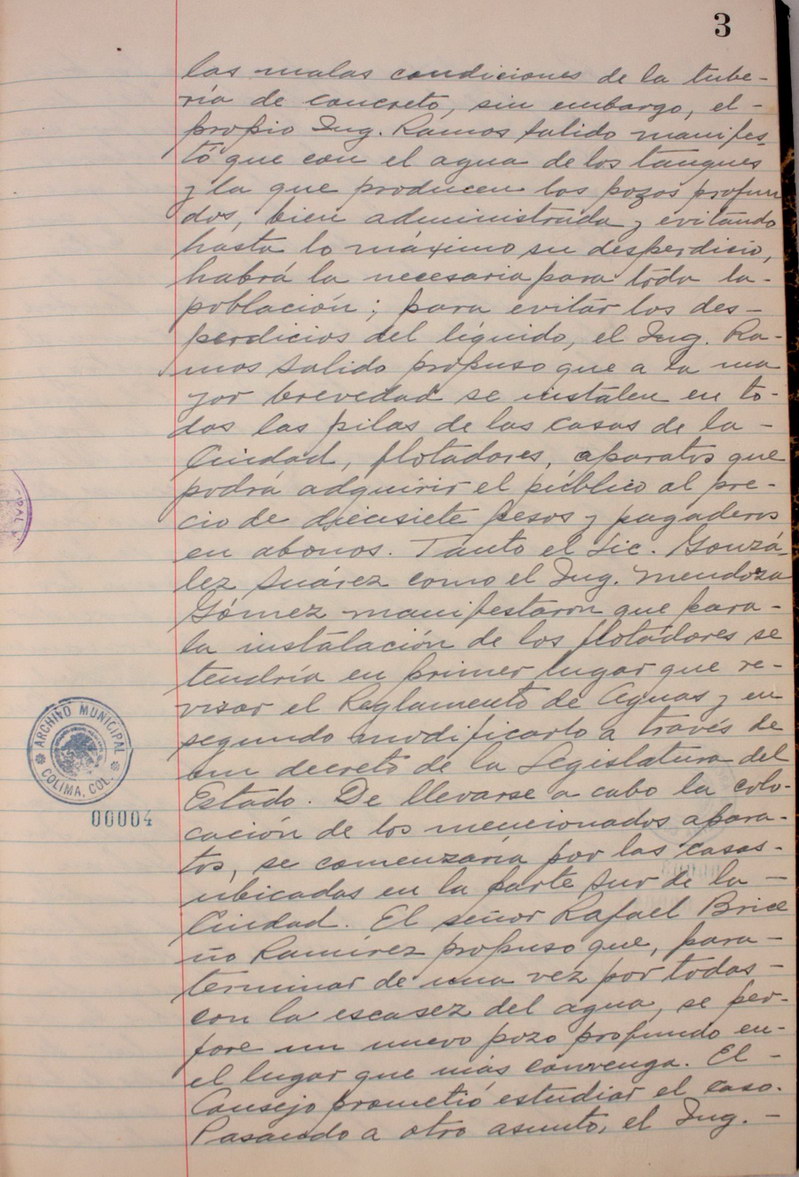 3
las malas condiciones de la tube-
ría de concreto, sin embargo, el-
propio Ing. Ramos Salido manifes-
tó que con el agua de los tanques
y la que producen los pozos profun
dos, bien administrada y evitando
hasta lo máximo su desperdicio,
habrá la necesaria para toda la-
población; para evitar los des-
perdicios del líquido, el Ing. Ra-
mos Salido propuso que a la ma
yor brevedad se instalen en to-
das las pilas de las casas de la-
Ciudad, flotadores, aparatos que
podrá adquirir el público al pre-
cio de diecisiete pesos y pagaderos
en abonos. Tanto el Lic. Gonzá-
lez Suárez como el Ing. Mendoza
Gómez manifestaron que para-
la instalación de los flotadores se
tendría en primer lugar que re-
visar el Reglamento de Aguas y en
segundo modificarlo a través de
un decreto de la Legislatura del
Estado. De llevarse a cabo la colo-
cación de los mencionados apara-
tos, se comenzaría por las casas-
ubicadas en la parte Sur de la-
Ciudad. El señor Rafael Brice
ño Ramírez propuso que, para-
terminar de una vez por todas-
con la escasez del agua, se per-
fore un nuevo pozo profundo en-
el lugar que más convenga. El-
Consejo prometió estudiar el caso.
Pasando a otro asunto, el Ing.-
ARCHIVO MUNICIPAL
COLIMA, COL.
00004